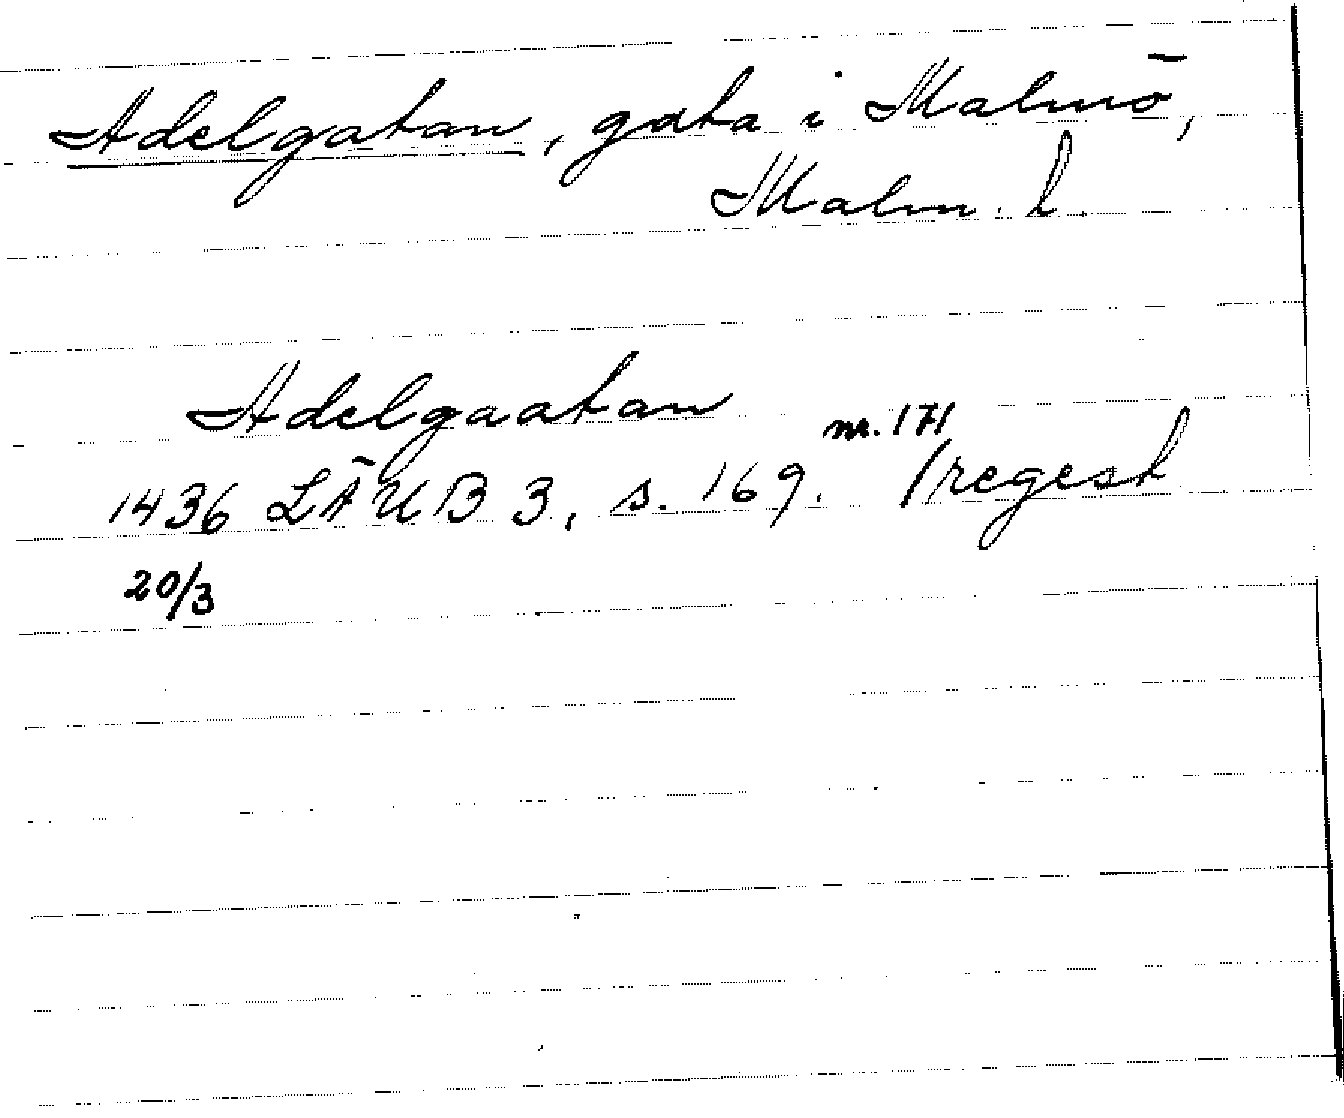 Adelgatan, gata i Malmö,
Malm. l.
Adelgaatan
1436 LÄUB 3, s. 169. nr. 171 /regest
20/3